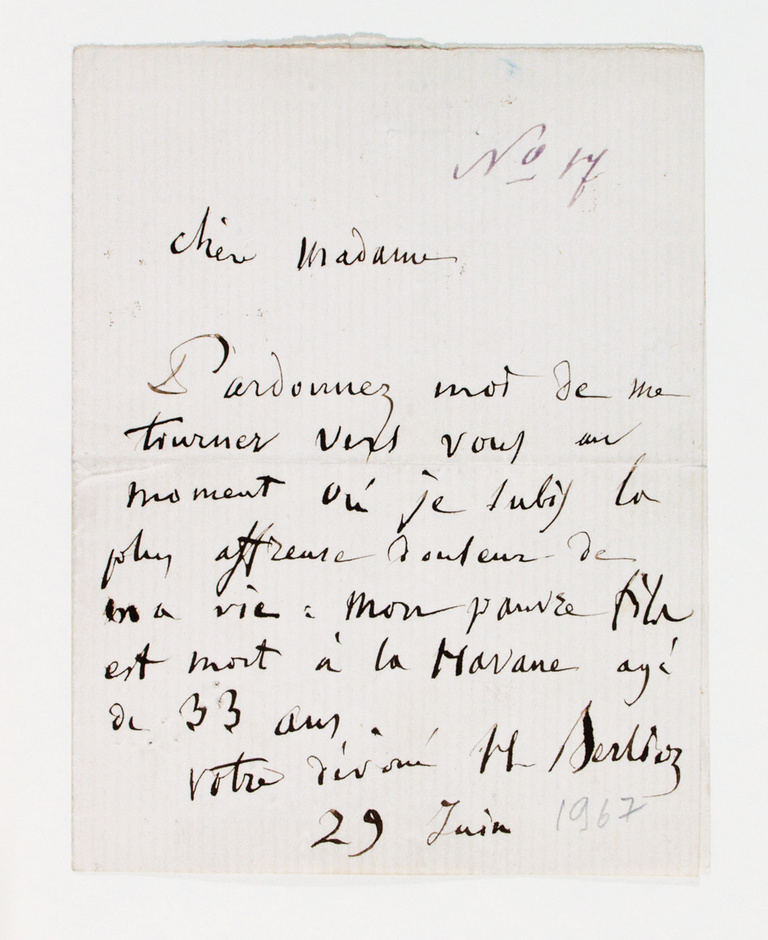 No 17
chère Madame
Pardonnez moi de me
tourner vers vous au
moment où je subis la
plus affreuse douleur de
ma vie : mon pauvre fils
est mort à la Havane agé
de 33 ans.
votre dévoué H Berlioz
29 Juin 1967